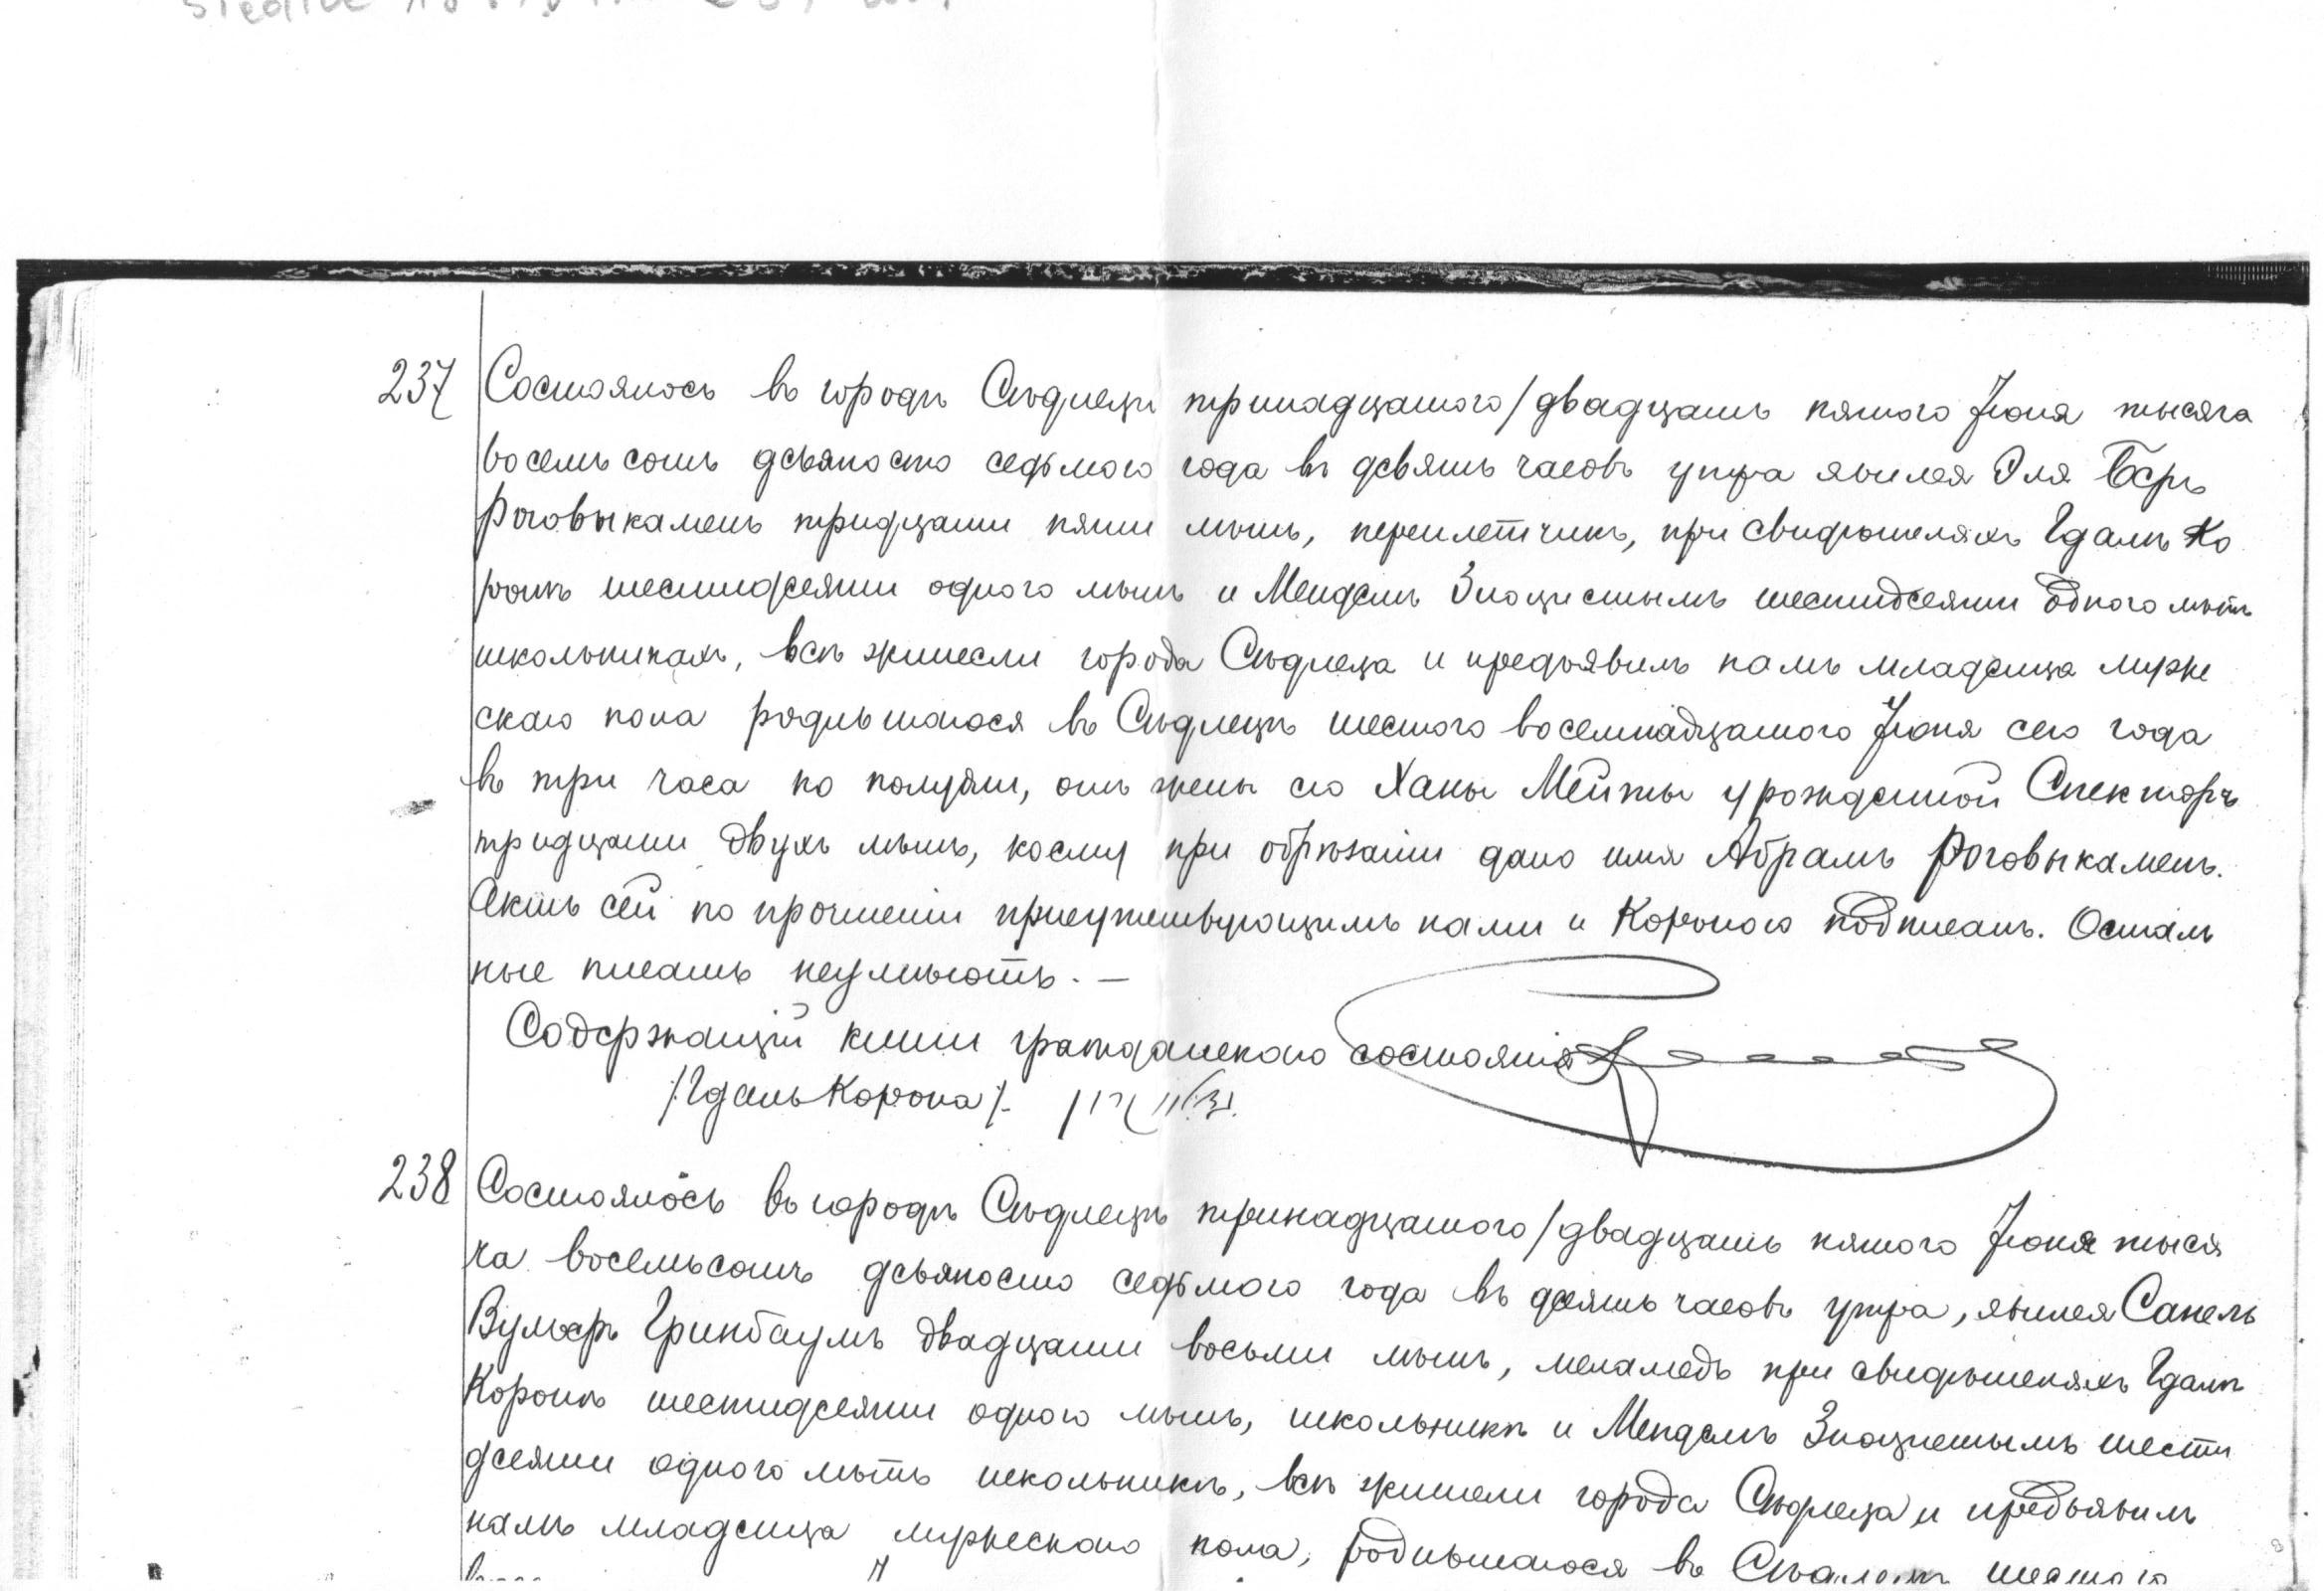 Siedlce
237 Состоялось въ городѣ Сѣдлецѣ тринадцатого/двадцать пятого Іюня тысяча
восемьсотъ девяносто седьмого года въ девять часовъ утра явился Эля Беръ
Роговыкамень тридцати пяти лѣтъ, переплетчикъ, при свидѣтеляхъ Гдалѣ Ко
ронѣ шестидесяти одного лѣтъ и Менделѣ Злоцистымъ шестидесяти одного лѣтъ
школьникахъ, всѣ жители города Сѣдлеца и предъявилъ намъ младенца мужe
скаго пола родившагося въ Сѣдлецѣ шестого восемнадцатого Іюня сего года
въ три часа по полудни, отъ жены его Ханы Мейты урожденной Спекторъ
тридцати двухъ лѣтъ, коему при обрѣзаніи дано имя Абрамъ Роговыкамень.
Актъ сей по прочтеніи присутствующимъ нами и Короною подписанъ. Осталь
ные писать неумѣютъ. —
Содержащій книги гражданскаго состоянія
/:Гдаль Корона:/.
238 Состоялось въ городѣ Сѣдлецѣ тринадцатого/двадцать пятого Іюня тыся
ча восемьсотъ девяносто седьмого года въ десять часовъ утра, явился Санель
Вульфъ Гринбаумъ двадцати восьми лѣтъ, меламедъ при свидѣтеляхъ Гдалѣ
Коронѣ шестидесяти одного лѣтъ, школьникѣ и Менделѣ Злоцистымъ шести
десяти одного лѣтъ школьникѣ, всѣ жители города Сѣдлеца и предъявилъ
намъ младенца мужескаго пола, родившагося въ Сѣдлецѣ шестого